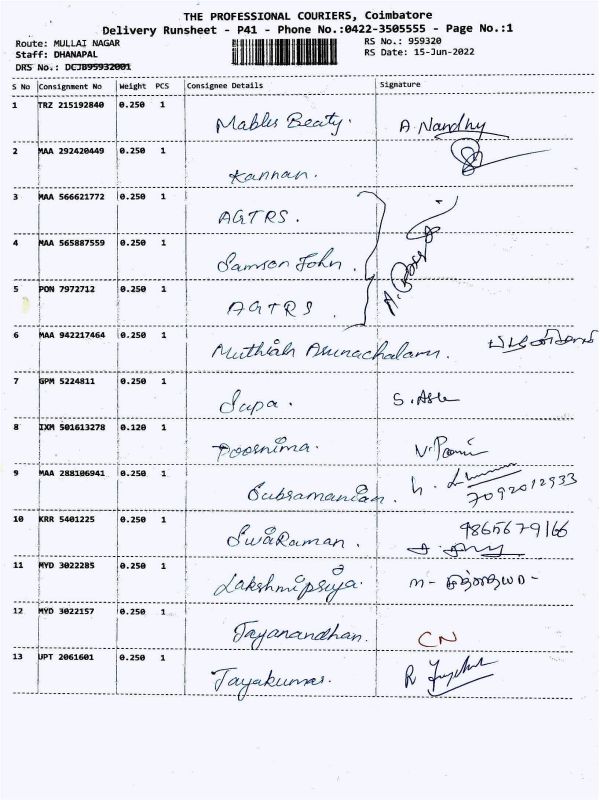 THE PROFESSIONAL COURIERS, Coimbatore
Delivery Runsheet - P41 - Phone No.:0422-3505555 - Page No.:1
Route: MULLAI NAGAR RS No.: 959320
Staff: DHANAPAL RS Date: 15-Jun-2022
DRS No.: DCJB95932001
S No Consignment No Weight PCS Consignee Details Signature
1 TRZ 215192840 0.250 1
Mables Beaty. A. Nandhy
2 MAA 292420449 0.250 1
Kannan.
3 MAA 566621772 0.250 1
AGTRS.
4 MAA 565887559 0.250 1
Samson John.
5 PON 7972712 0.250 1
AGTRS.
6 MAA 942217464 0.250 1
Muthiah Arunachalam.
7 GPM 5224811 0.250 1
Supa.
8 IXM 501613278 0.120 1
Poornima.
9 MAA 288106941 0.250 1
Subramanian. 7092012933
10 KRR 5401225 0.250 1
SwaRaman. 9865679166
11 MYD 3022285 0.250 1
Lakshmipriya.
12 MYD 3022157 0.250 1
Jayanandhan. CN
13 UPT 2061601 0.250 1
Jayakumar.